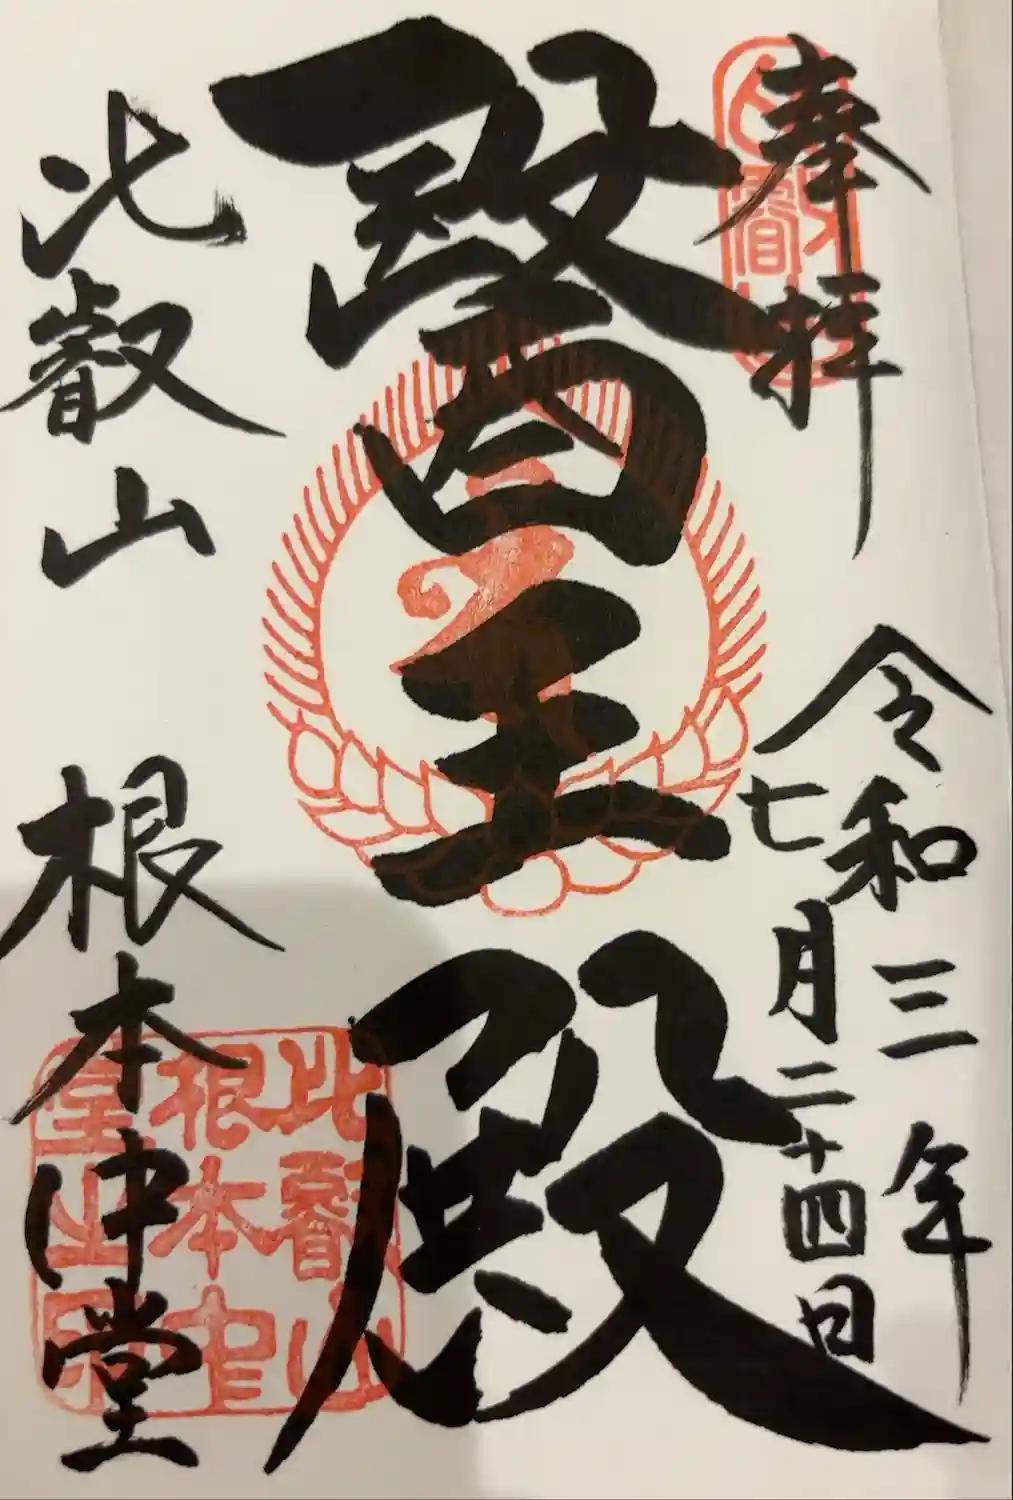 奉拝
令和三年
七月二十四日
醫王殿
比叡山 根本中堂
比叡山
根本中
堂之印